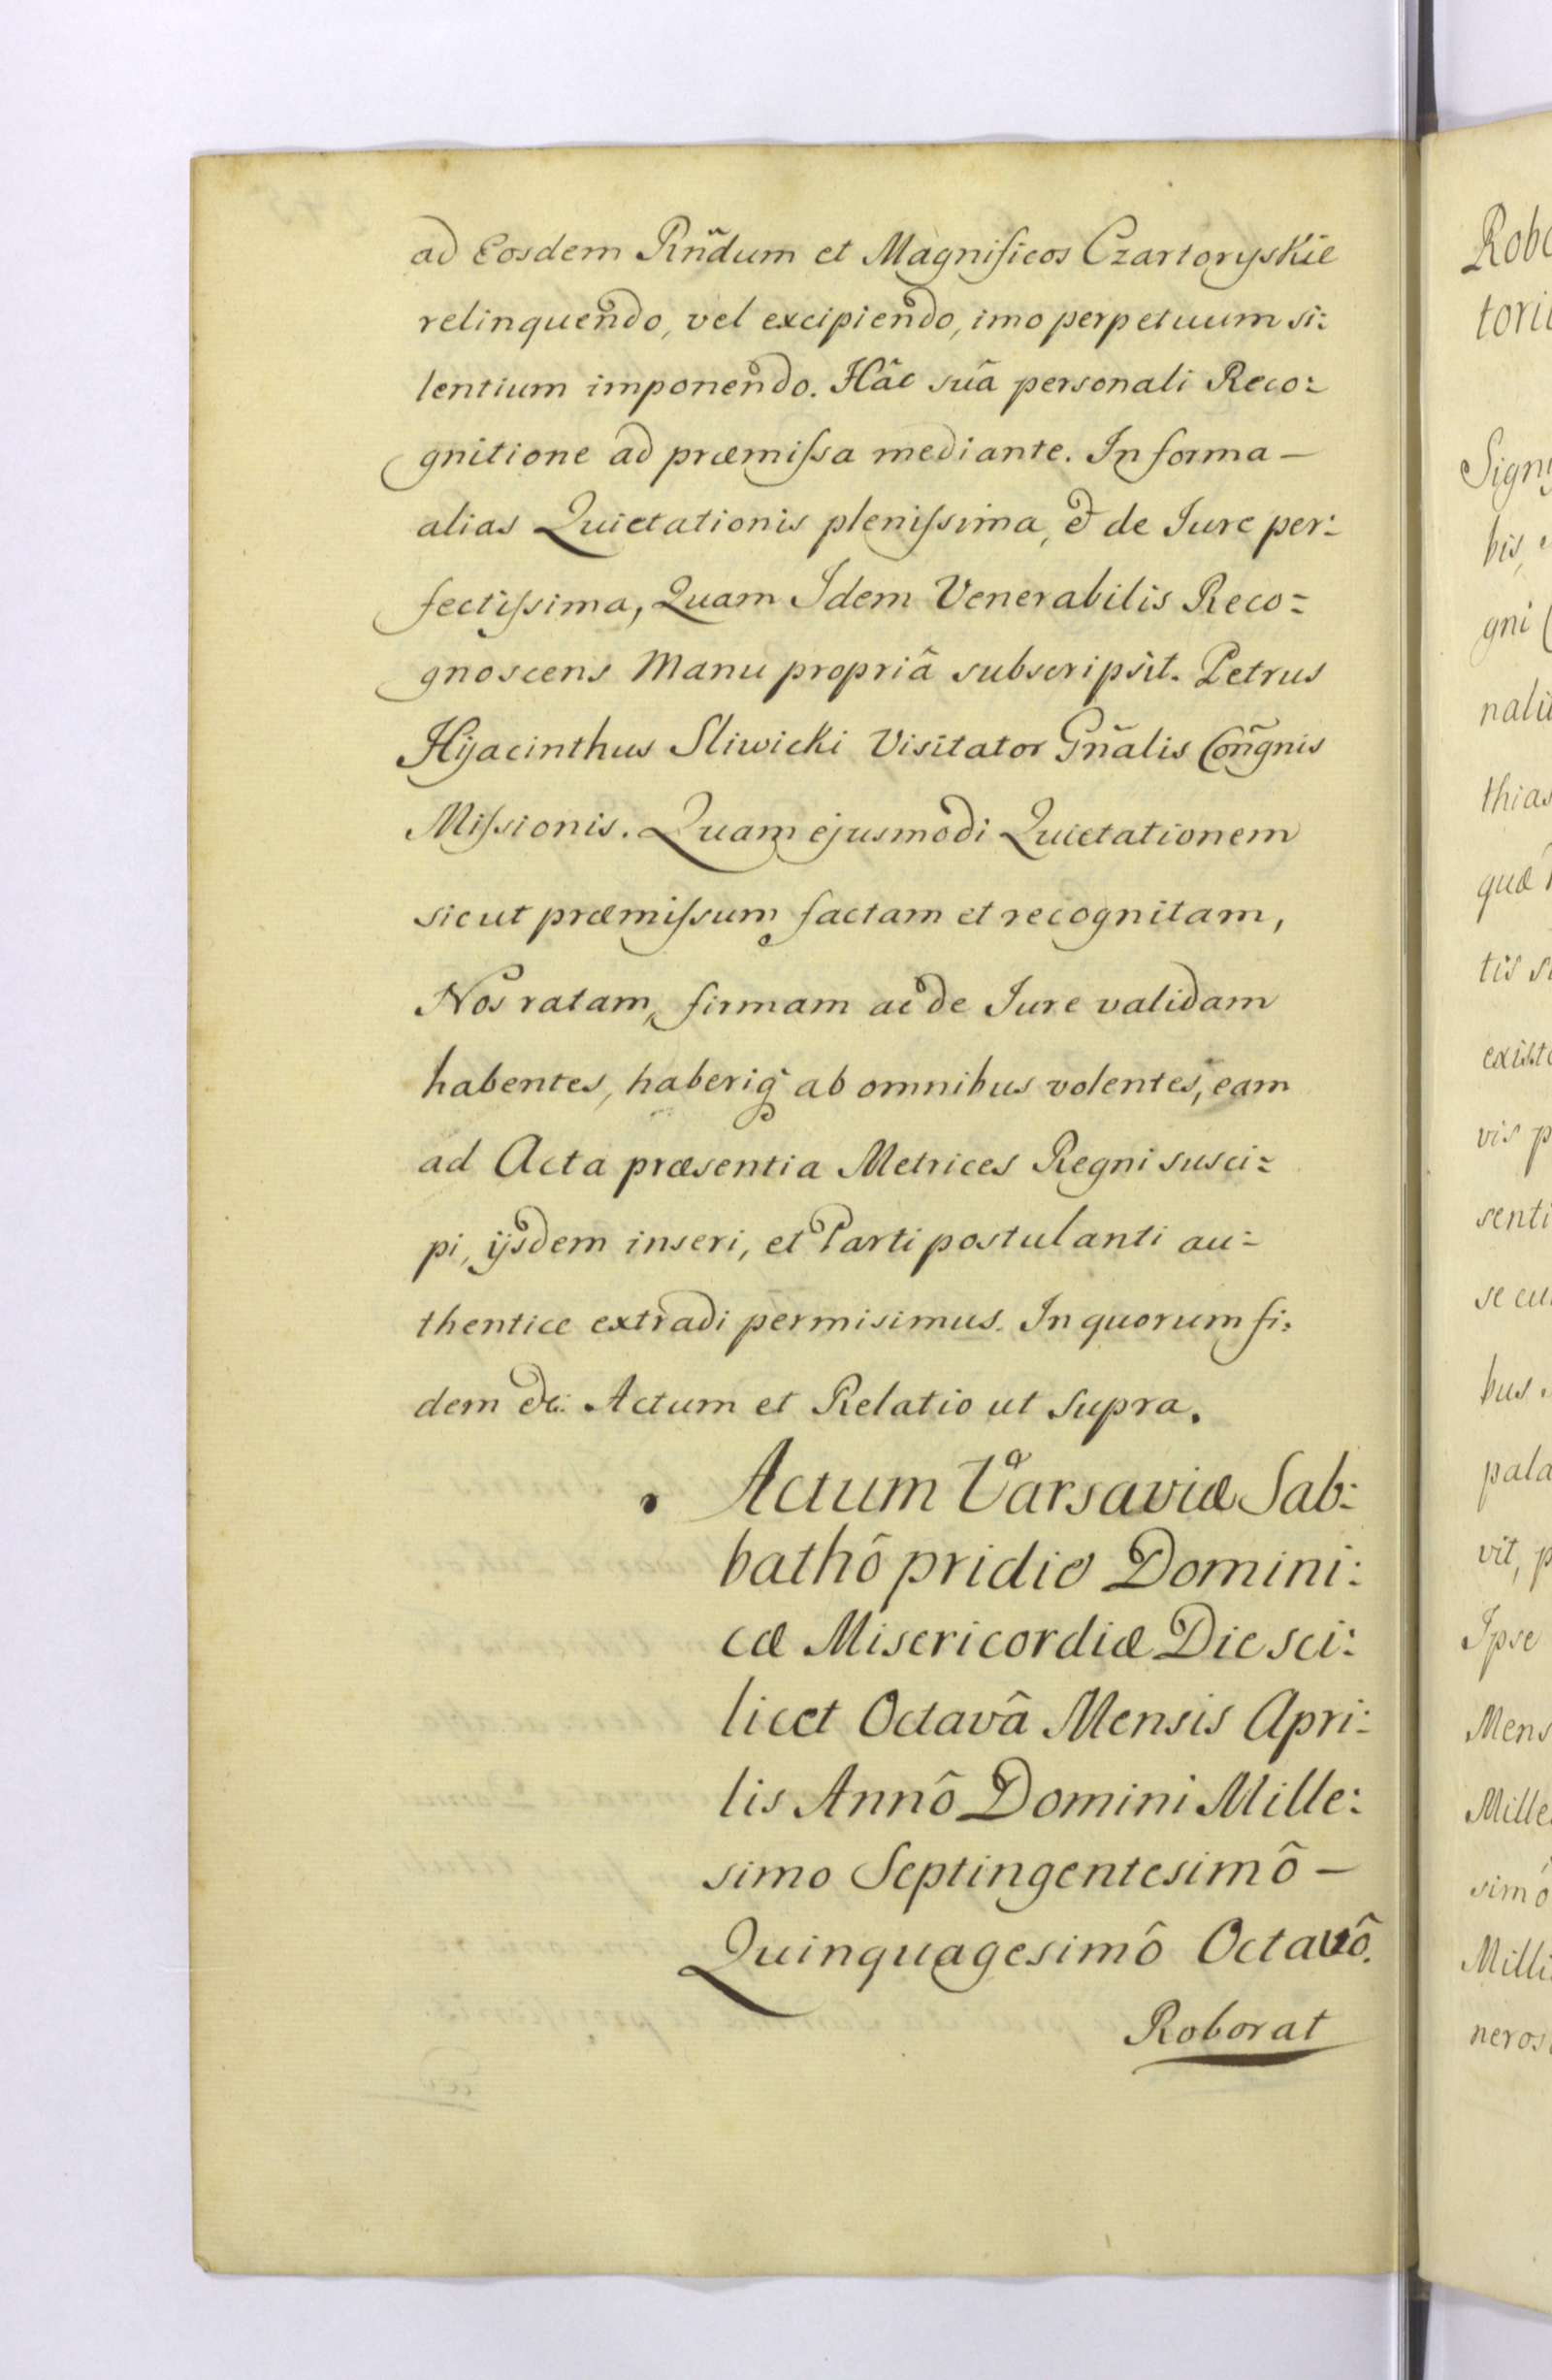 ad Eosdem Rñdum et Magnificos Czartoryskie
relinquendo, vel excipiendo, imo perpetuum si:
lentium imponendo. Hâc suâ personali Reco:
gnitione ad præmiſsa mediante. In forma —
alias Quietationis pleniſsima, & de Jure per:
fectiſsima, Quam Idem Venerabilis Reco:
gnoscens Manu propriâ subscripsit. Petrus
Hyacinthus Sliwicki Visitator Gñalis Congñis
Miſsionis. Quam ejusmodi Quietationem
sicut præmiſsum factam et recognitam,
Nos ratam, firmam ac de Jure validam
habentes, haberiq̃ ab omnibus volentes, eam
ad Acta præsentia Metrices Regni susci:
pi, ijsdem inseri, et Parti postulanti au:
thentice extradi permisimus. In quorum fi:
dem &c. Actum et Relatio ut supra.
Actum Varsaviæ Sab:
bathô pridie Domini:
cæ Misericordiæ Die sci:
licet Octavâ Mensis Apri:
lis Annô Domini Mille:
simo Septingentesimô —
Quinquagesimô Octavô.
Roborat
Signi
bis,
gni
nali
thias
quæ
tis
vis p
senti
se cu
bus
pala
vit, p
Ipse
Mens
Mille
simô
Milli
neros